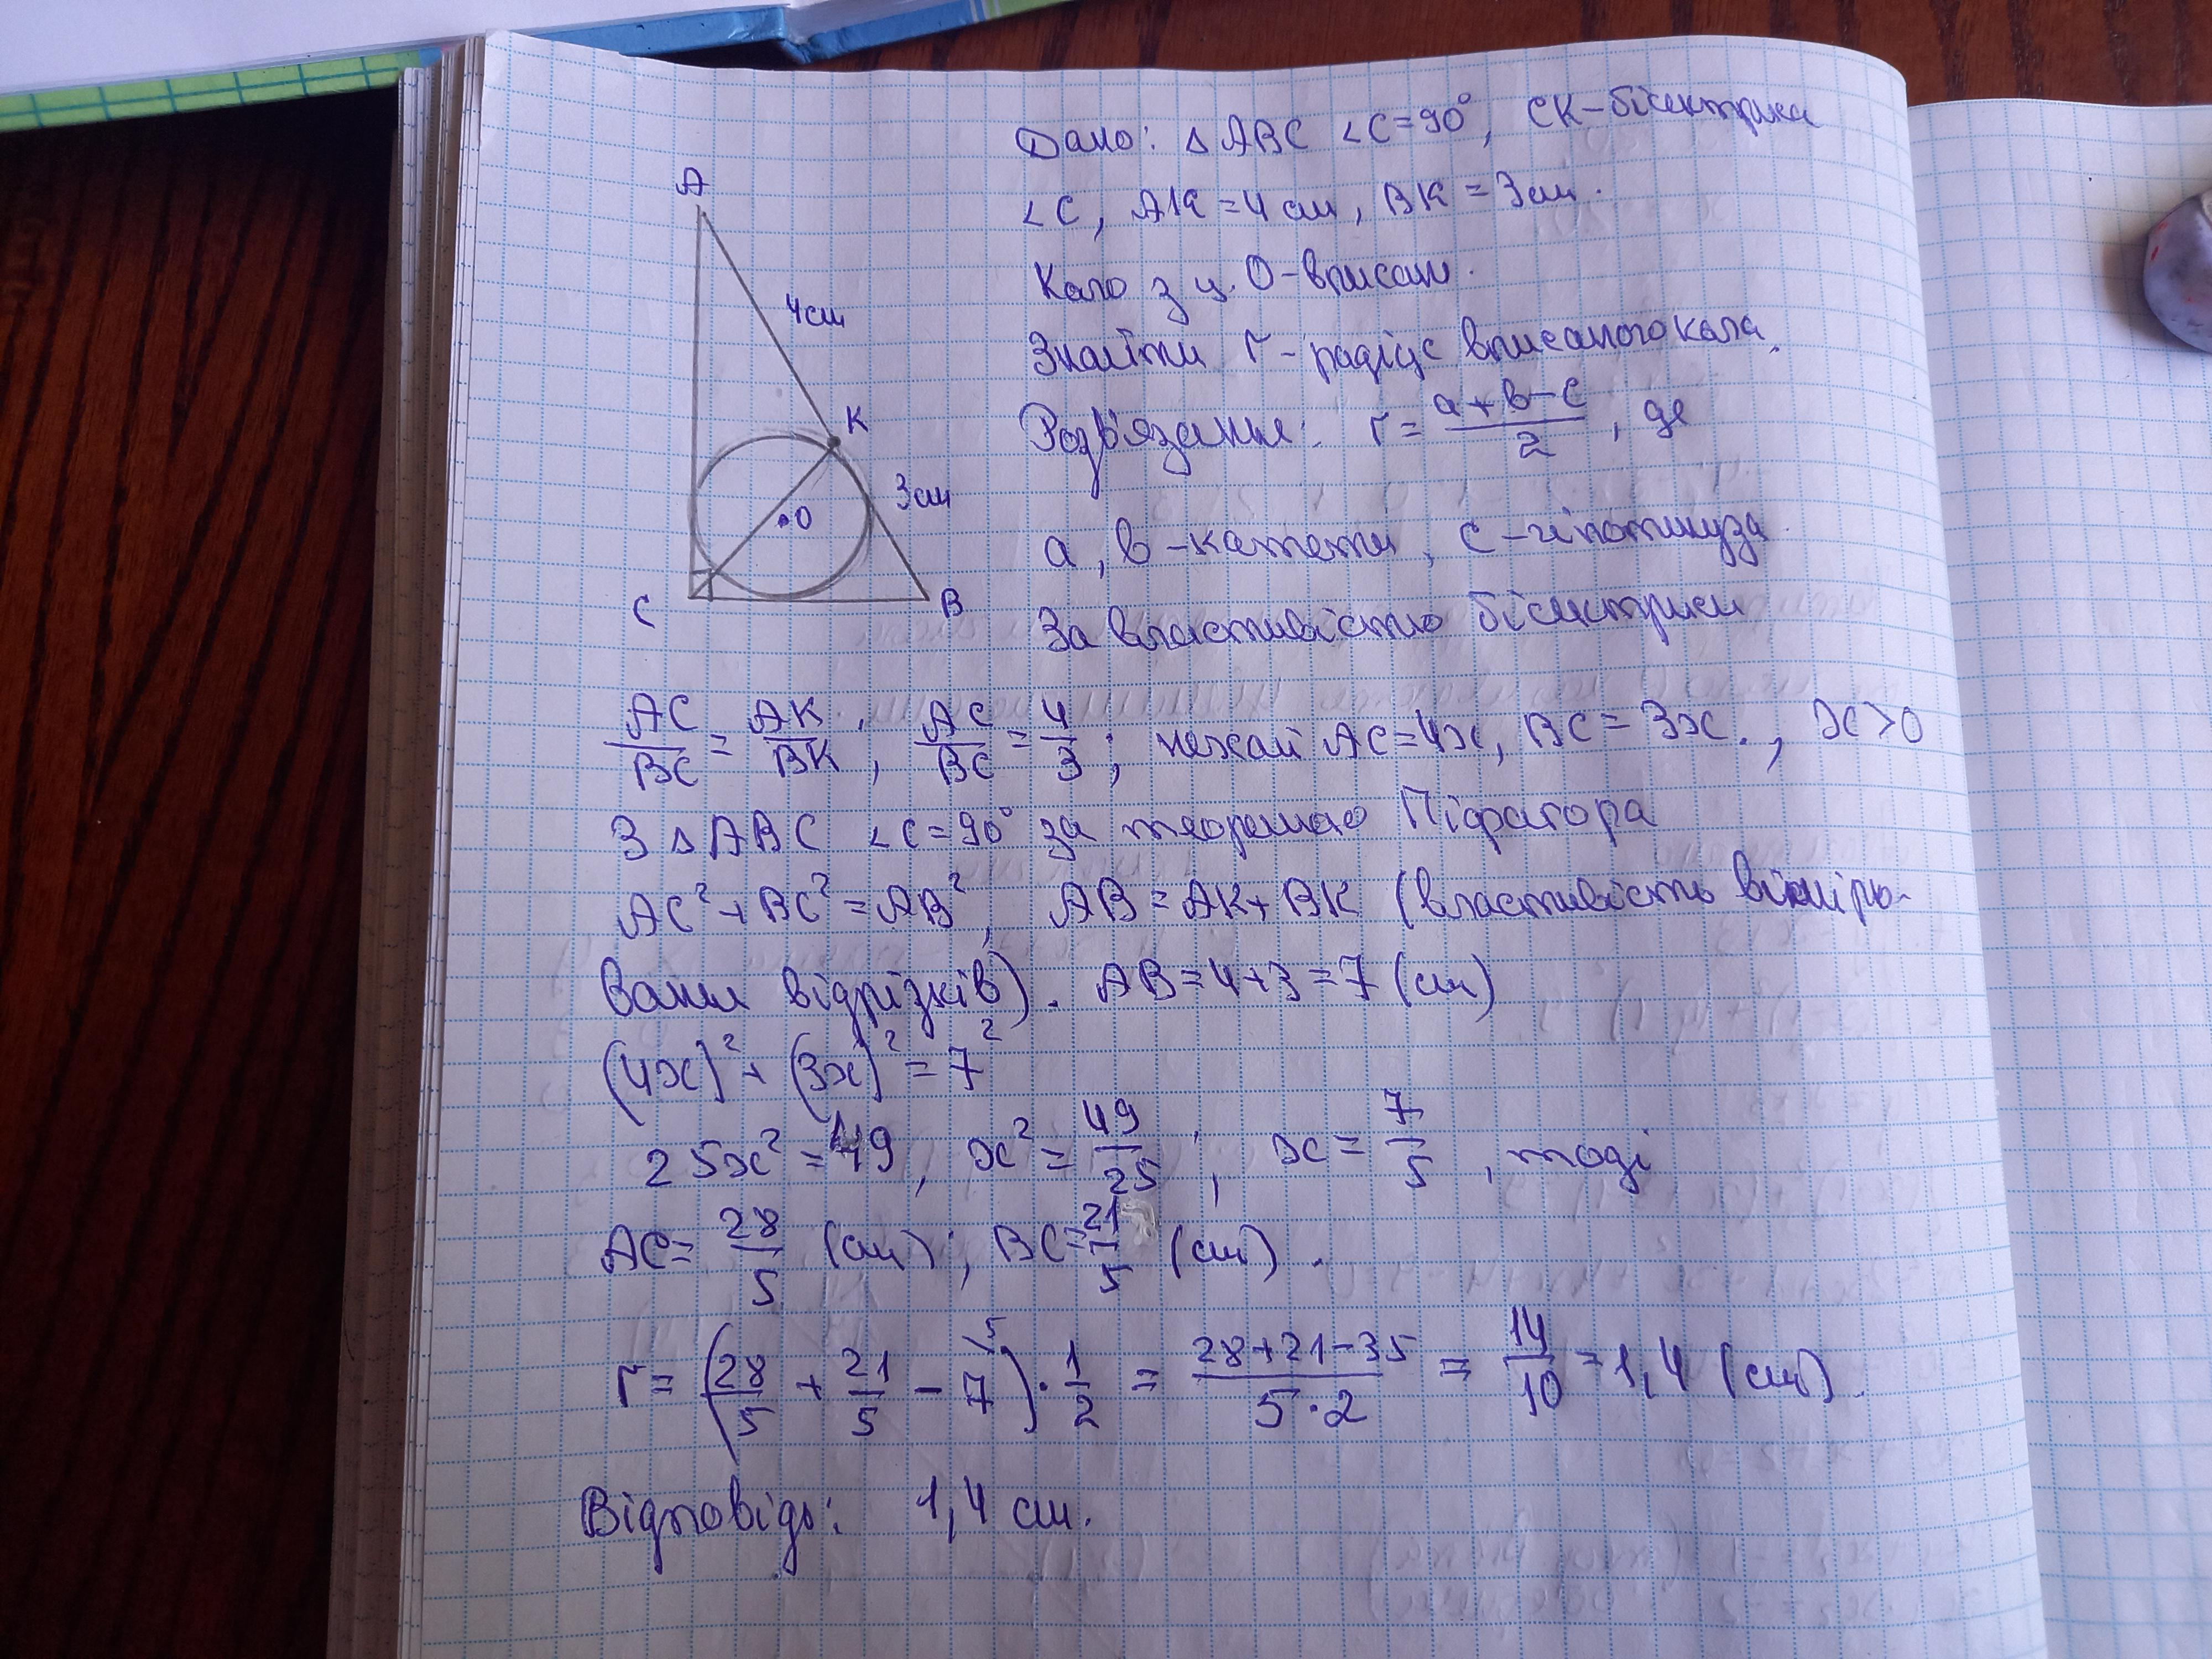 Дано: △ABC ∠C=90°, CK-бісектриса
∠C, AK=4 см, BK=3см.
Коло з ц. O-вписан.
Знайти r-радіус вписаного кола.
Розв'язання: r = (a+b-c)/2, де
a, b-катети, c-гіпотинуза
За властивістю бісектриси
AC/BC = AK/BK; AC/BC = 4/3; нехай AC=4x, BC=3x., x>0
З △ABC ∠C=90° за теоремою Піфагора
AC²+BC²=AB², AB=AK+BK (властивість вимірю-
вання відрізків). AB=4+3=7 (см)
(4x)²+(3x)²=7²
25x²=49, x²=49/25; x=7/5, тоді
AC=28/5 (см); BC=21/5 (см).
r=(28/5+21/5-7\5)·1/2=(28+21-35)/(5·2)=14/10=1,4 (см).
Відповідь: 1,4 см.
A
4см
K
3см
O
C
B